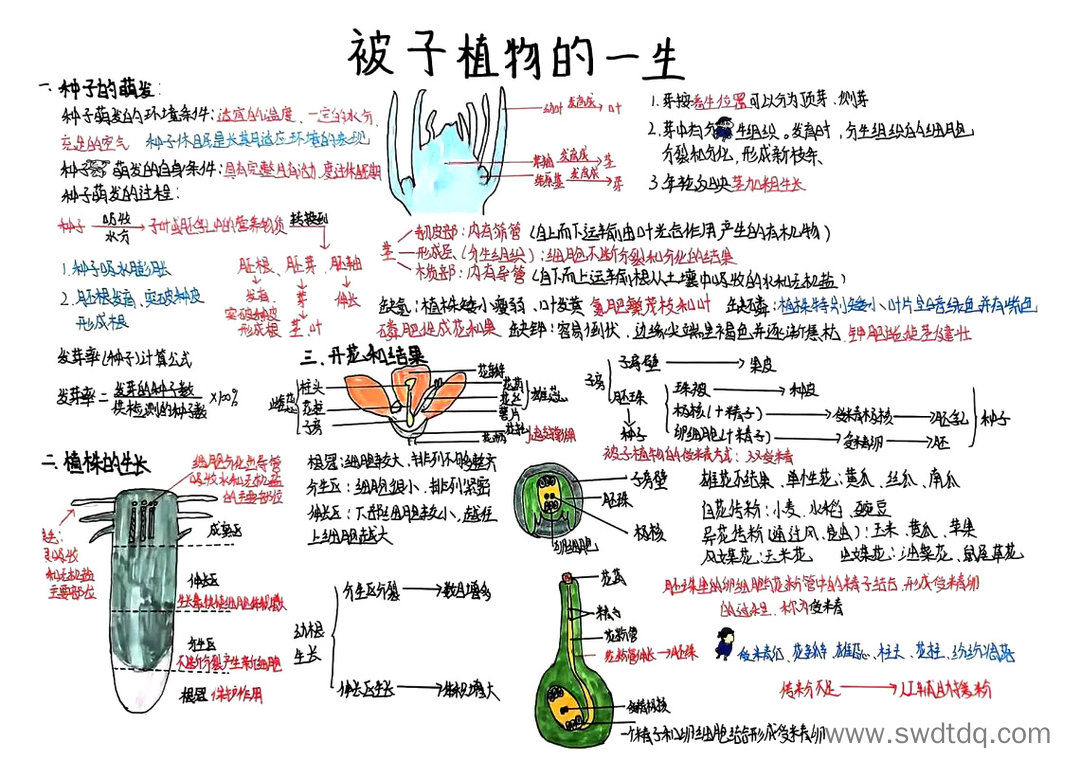 被子植物的一生
一、种子的萌发:
种子萌发的环境条件:适宜的温度、一定的水分、
充足的空气 种子休眠是长期适应环境的表现
种子萌发的自身条件:具有完整且有活力,度过休眠期
种子萌发的过程:
种子 吸收水分 子叶或胚乳中的营养物质 转换到
胚根、胚芽、胚轴
1.种子吸水膨胀
2.胚根发育,突破种皮
形成根
发育,突破种皮形成根
芽
茎、叶
伸长
发芽率(种子)计算公式
发芽率=发芽的种子数/供检测的种子数×100%
幼叶 发育成 叶
芽轴 发育成 茎
芽原基 发育成 芽
1.芽按着生位置可以分为顶芽、侧芽
2.芽中有分生组织。发育时,分生组织的细胞
分裂和分化,形成新枝条
3.年轮反映茎加粗生长
茎
韧皮部:内有筛管(自上而下运输由叶光合作用产生的有机物)
形成层(分生组织):细胞不断分裂和分化的结果
木质部:内有导管(自下而上运输根从土壤中吸收的水和无机盐)
缺氮:植株矮小瘦弱、叶发黄 氮肥繁茂枝和叶 缺磷:植株特别矮小、叶片呈暗绿色,并有紫色
磷肥组成花和果 缺钾:容易倒伏,边缘尖端呈褐色并逐渐焦枯,钾肥能使茎健壮
三、开花和结果
雌蕊
柱头
花柱
子房
花瓣
花药
花丝
雄蕊
萼片
花托
花柄
子房
子房壁 果皮
胚珠
种子
珠被 种皮
极核(+精子) 受精极核 胚乳
卵细胞(+精子) 受精卵 胚
种子
被子植物的受精方式:双受精
二、植株的生长
细胞分化出导管
吸收水和无机盐
的主要部位
成熟区
伸长区
生长最快
分生区
不断分裂产生新细胞
根冠 保护作用
根冠:细胞较大、排列不够整齐
分生区:细胞很小、排列紧密
伸长区:下部细胞较小,越往
上细胞越大
幼根生长
分生区分裂 数目增多
伸长区生长 体积增大
子房壁
胚珠
极核
卵细胞
雄花不结果、单性花:黄瓜、丝瓜、南瓜
自花传粉:小麦、水稻、豌豆
异花传粉(通过风、昆虫):玉米、黄瓜、苹果
风媒花:玉米花 虫媒花:油菜花、鼠尾草花
胚珠里的卵细胞与花粉管中的精子结合,形成受精卵
的过程,称为受精
花药
精子
花粉管
花粉管伸长 胚珠
受精极核
一个精子和卵细胞结合形成受精卵
受精后,花瓣、雄蕊、柱头、花柱、纷纷凋落
传粉不足 人工辅助授粉
www.swdtdq.com